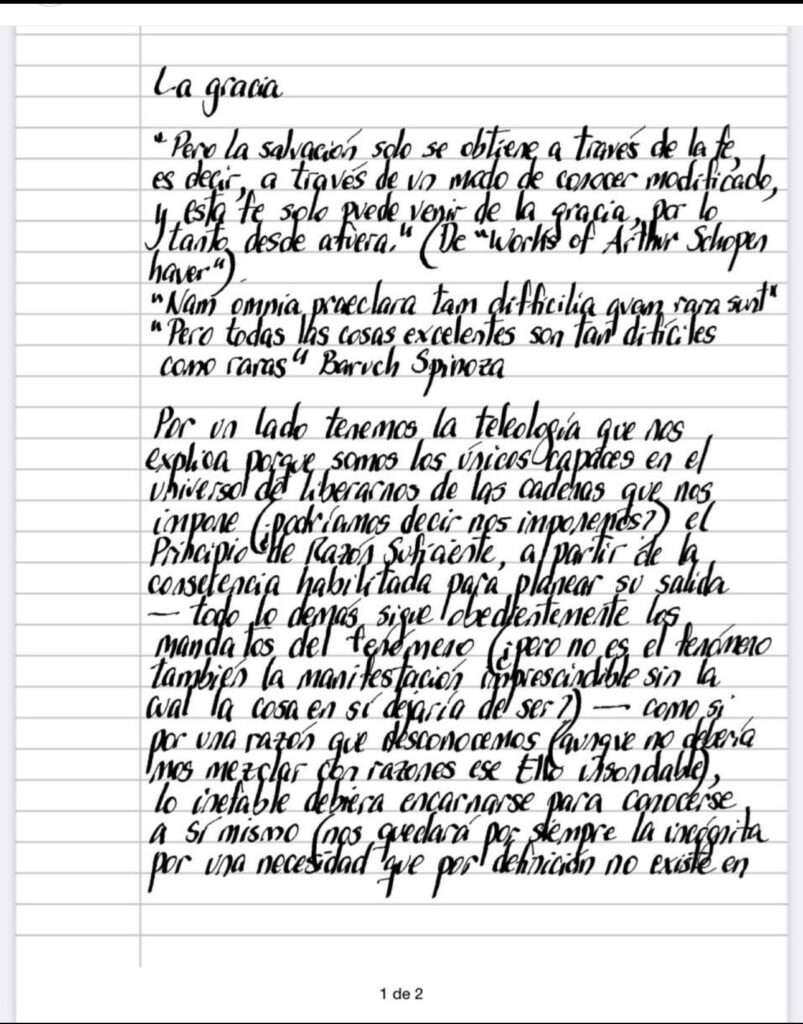 La gracia
"Pero la salvación solo se obtiene a través de la fe,
es decir, a través de un modo de conocer modificado,
y esta fe solo puede venir de la gracia, por lo
tanto, desde afuera." (De "Works of Arthur Schopen
hauer").
"Nam omnia praeclara tam difficilia quam rara sunt"
"Pero todas las cosas excelentes son tan difíciles
como raras" Baruch Spinoza
Por un lado tenemos la teleología que nos
explica porque somos los únicos capaces en el
universo de liberarnos de las cadenas que nos
impone (¿podríamos decir nos imponemos?) el
Principio de Razón Suficiente, a partir de la
consciencia habilitada para planear su salida
— todo lo demás sigue obedientemente los
mandatos del fenómeno (¿pero no es el fenómeno
también la manifestación imprescindible sin la
cual la cosa en sí dejaría de ser?) — como si
por una razón que desconocemos (aunque no debería
mos mezclar con razones ese Ello insondable),
lo inefable debiera encarnarse para conocerse
a sí mismo (nos quedará por siempre la incógnita
por una necesidad que por definición no existe en
1 de 2